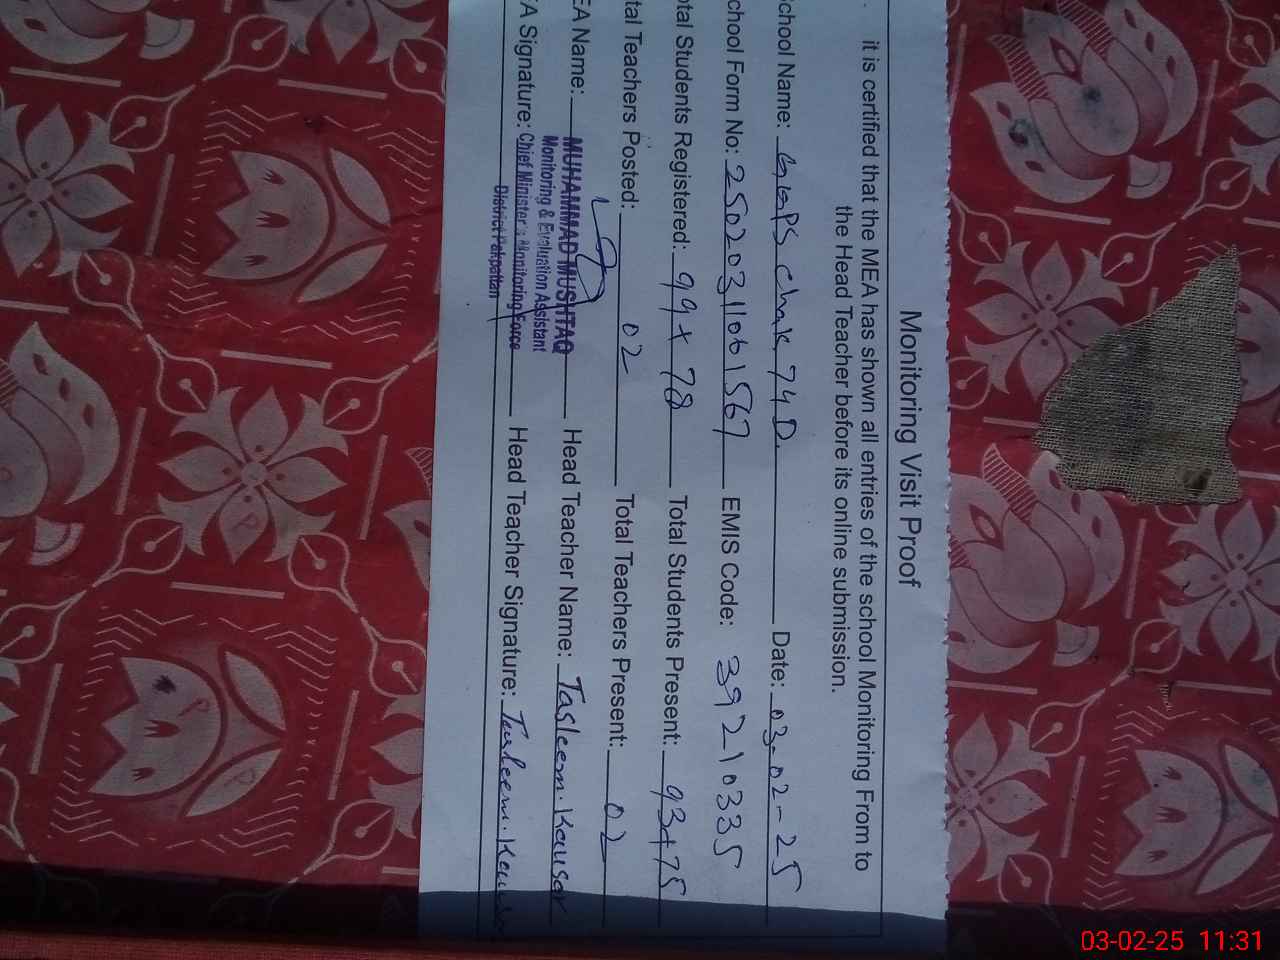 Monitoring Visit Proof
it is certified that the MEA has shown all entries of the school Monitoring From to
the Head Teacher before its online submission.
chool Name: GGPS chak 74 D. Date: 03-02-25
chool Form No: 25020311061567 EMIS Code: 39210335
otal Students Registered: 99+78 Total Students Present: 93+75
tal Teachers Posted: 02 Total Teachers Present: 02
EA Name: MUHAMMAD MUSHTAQ Head Teacher Name: Tasleem.Kausar
Monitoring & Evaluation Assistant
A Signature: Chief Minister's Monitoring Force Head Teacher Signature: Tasleem.Kausar
District Pakpattan
03-02-25 11:31